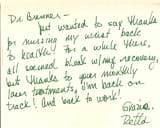 Dr. Brenner –
Just wanted to say thanks
for nursing my wrist back
to health! For a while there,
all seemed bleak w/ my recovery,
but thanks to your monthly
laser treatments, I'm back on
track! and back to work!
Grazie,